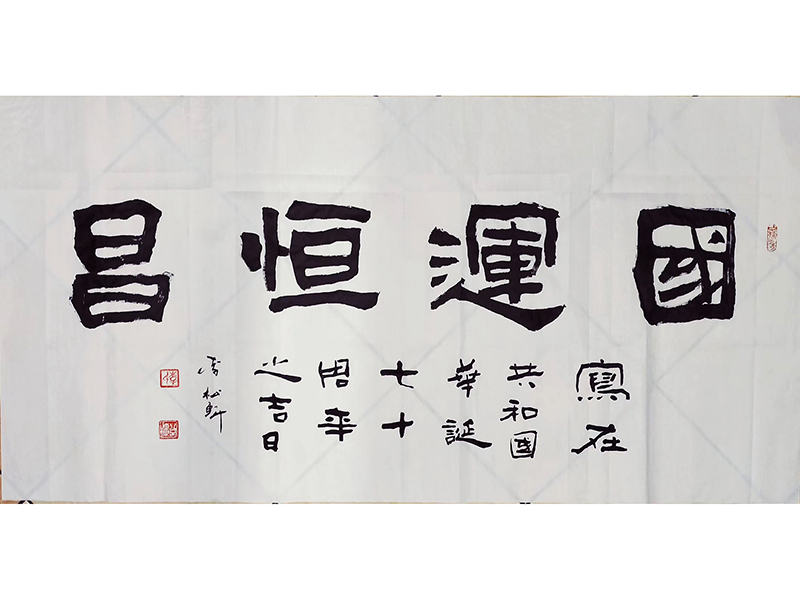 國運恒昌
寫在
共和國
華誕
七十
周年
之吉日
松軒